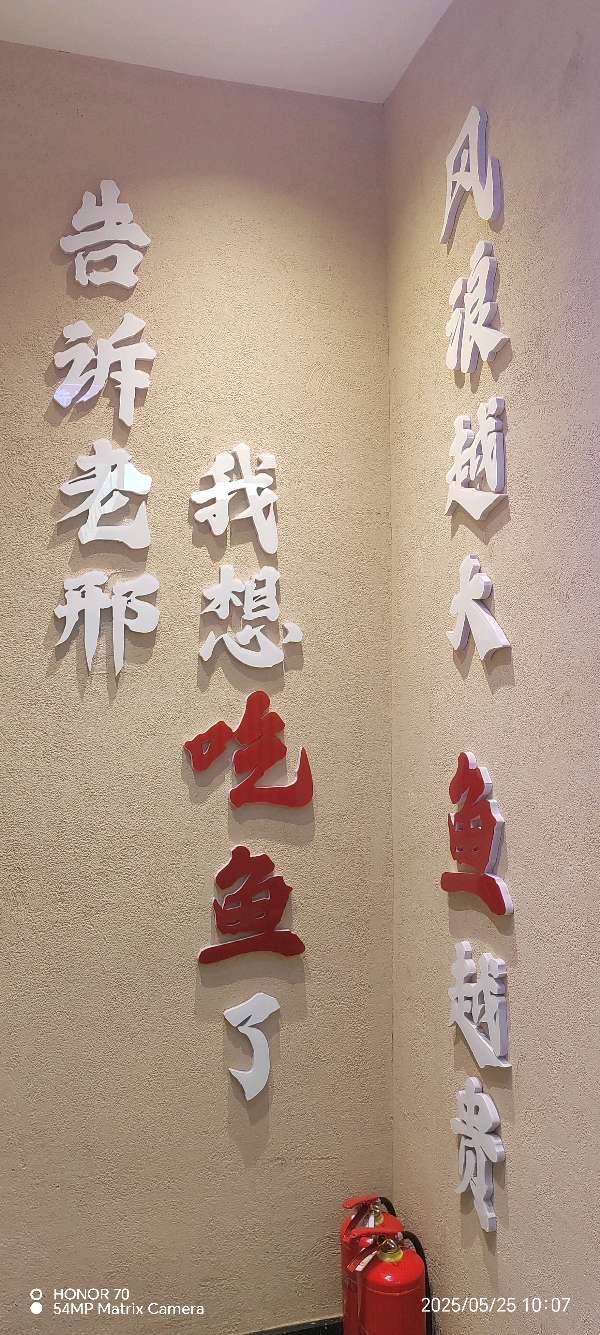 告诉老邢
我想吃鱼了
风浪越大 鱼越贵
HONOR 70
54MP Matrix Camera
2025/05/25 10:07